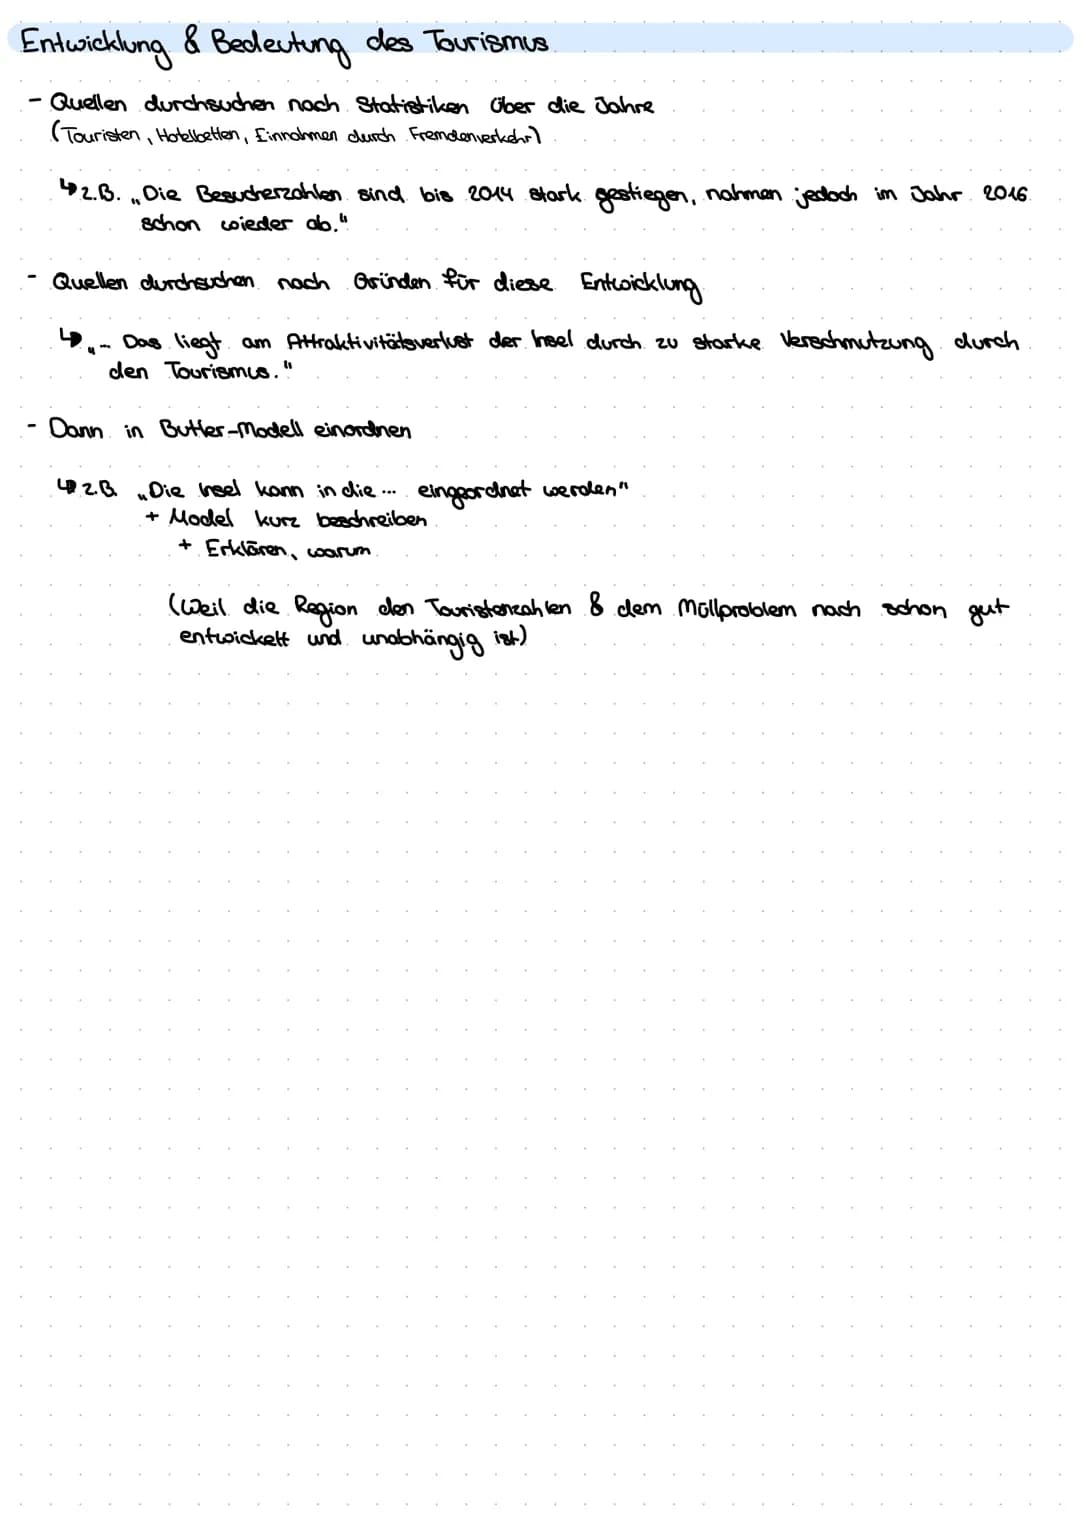 Entwicklung & Bedeutung des Tourismus
- Quellen durchsuchen nach Statistiken über die Jahre
(Touristen, Hotelbetten, Einnahmen durch Fremdenverkehr)
↳ z.B. „Die Besucherzahlen sind bis 2014 stark gestiegen, nahmen jedoch im Jahr 2016
schon wieder ab."
- Quellen durchsuchen nach Gründen für diese Entwicklung
↳ „... Das liegt am Attraktivitätsverlust der Insel durch zu starke Verschmutzung durch
den Tourismus."
- Dann in Butler-Modell einordnen
↳ z.B. „Die Insel kann in die ... eingeordnet werden"
+ Model kurz beschreiben
+ Erklären, warum
(Weil die Region den Touristenzahlen & dem Müllproblem nach schon gut
entwickelt und unabhängig ist)